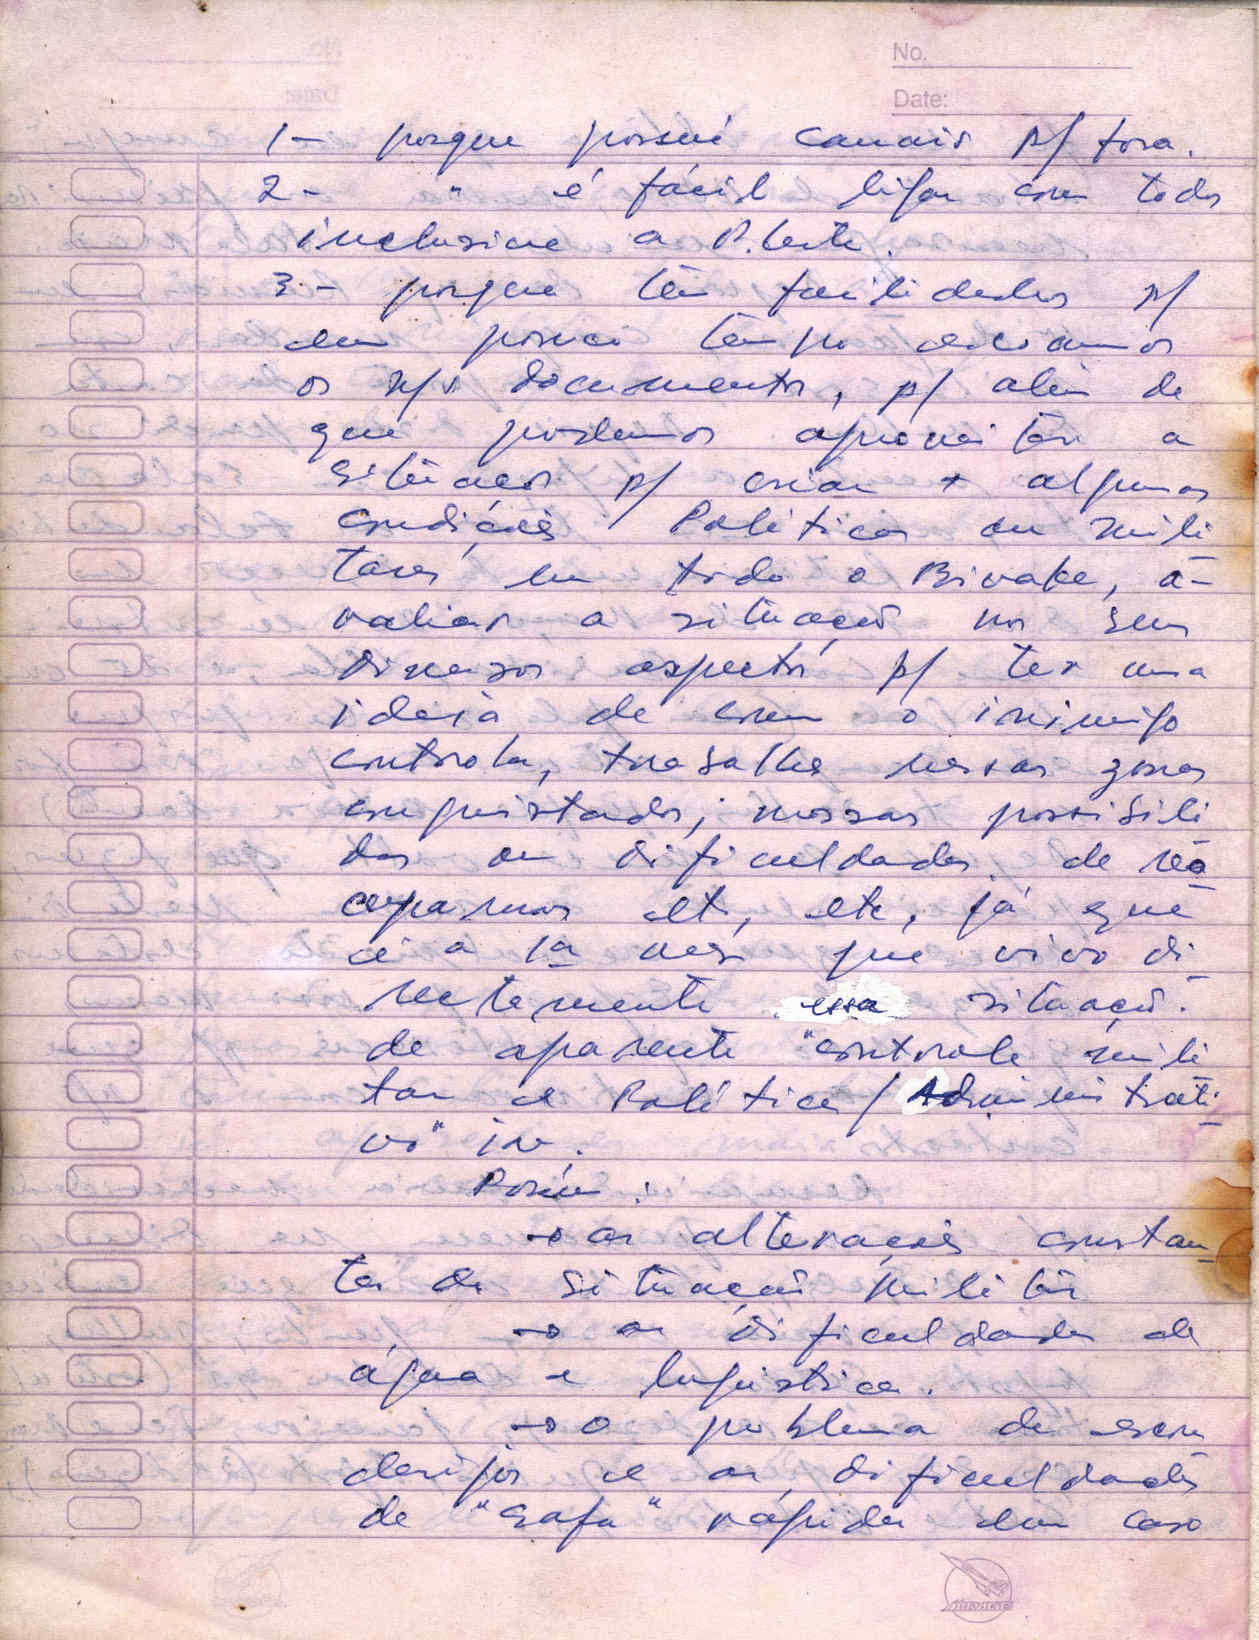 No.
Date:
1- porque possui canais p/ fora.
2- " é fácil ligar com todos
inclusive a P. Leste.
3- porque têm facilidades p/
em pouco têmpo
os n/s documentos, p/ alem de
que podemos aproveitar a
situação p/ criar + algumas
condições Politicas ou mili
tares em todo o Bivake, a-
valiar a situação nos seus
diversos aspectos p/ ter uma
ideia de como o inimigo
controla, trabalha nessas zonas
conquistadas; nossas possibili
das ou dificuldades de reo
cuparmos etc, etc, já que
é a 1a vez que vivo di
rectamente essa situação.
de aparente "controle mili
tar e Politico/Administrati
vo" in.
Porém:
→ as alterações constan
tes da situação militar
→ as dificuldades de
água e logistica.
→ o problema de escon
derijos e as dificuldades
de "Safa" rápida em caso